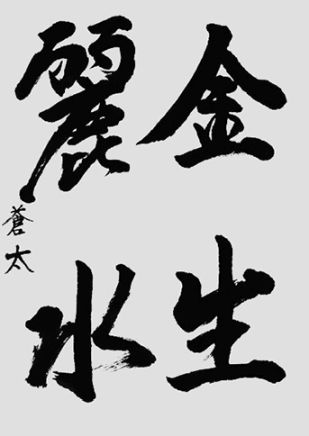 金生
麗水
蒼太